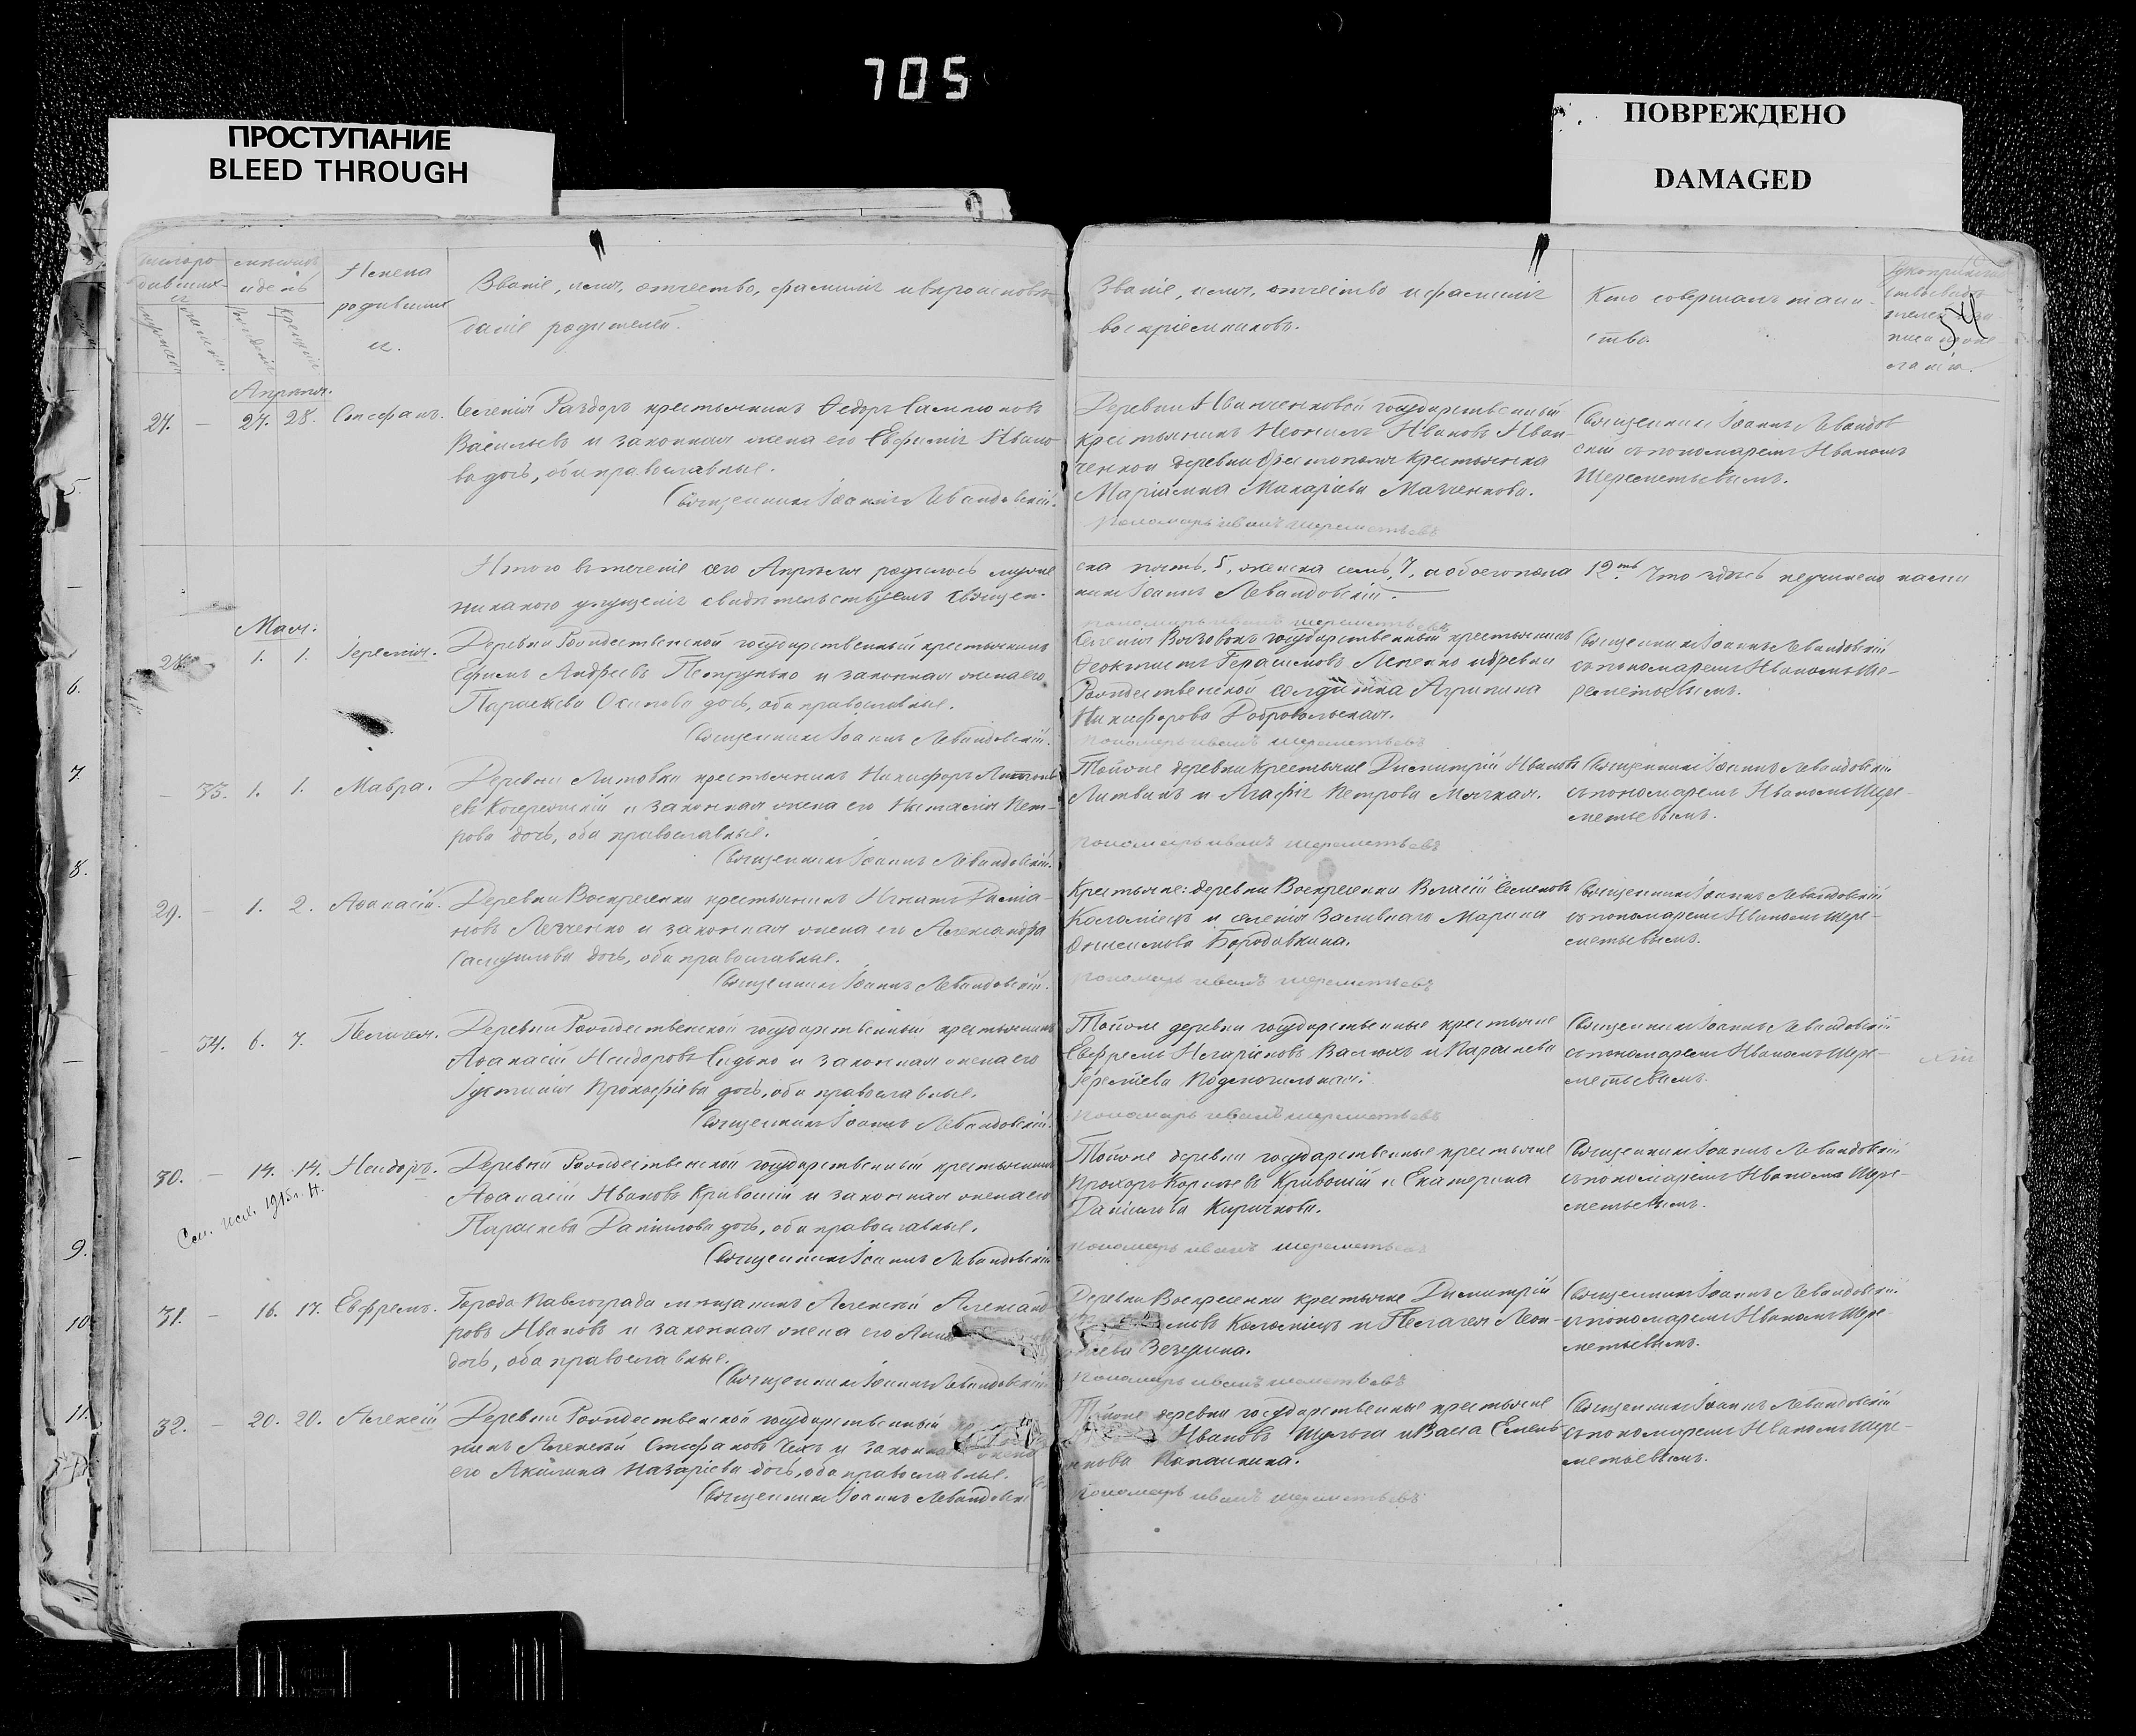 705
ПРОСТУПАНИЕ
BLEED THROUGH
ПОВРЕЖДЕНО
DAMAGED
54
Имена
родивших
ся.
Званіе, имя, отчество, фамилія и вѣроисповѣ-
даніе родителей.
Званіе, имя, отчество и фамилія
воспріемниковъ.
Кто совершалъ таин-
ство.
Апрѣля.
27. — 27. 28. Стефанъ.
Селенія Раздоръ крестьянинъ Ѳедоръ
Васильевъ и законная жена его Евфимія Ивано-
ва дочь, оба православные.
Священникъ Іоаннъ Левандовскій.
Деревни Иванченковой государственный
крестьянинъ Иванъ-
ченко и деревни крестьянка
Макаріева Марченкова.
Пономарь Иванъ Шереметьевъ
Священникъ Іоаннъ Левандов-
скій съ пономаремъ Иваномъ
Шереметьевымъ.
Итого въ теченіе сего Апрѣля родилось мужес-
ска пять, 5, женска семь, 7, а обоего пола 12ть. Что здѣсь неучинено нами
никакого упущенія свидѣтельствуемъ Священ-
никъ Іоаннъ Левандовскій.
Пономарь Иванъ Шереметьевъ
Мая.
28. 1. 1. Іеремія.
Деревни Рождественской государственный крестьянинъ
Ефимъ Андреевъ Петрунько и законная жена его
Параскева Осипова дочь, оба православные.
Священникъ Іоаннъ Левандовскій.
Селенія Вязовокъ государственный крестьянинъ
Ѳеоктистъ Герасимовъ Лепенко и деревни
Рождественской солдатка Агрипина
Никифорова Добровольская.
Пономарь Иванъ Шереметьевъ
Священникъ Іоаннъ Левандовскій
съ пономаремъ Иваномъ Ше-
реметьевымъ.
— 33. 1. 1. Мавра.
Деревни Литовки крестьянинъ Никифоръ
и законная жена его Наталія Пет-
рова дочь, оба православные.
Священникъ Іоаннъ Левандовскій.
Тойже деревни крестьяне Димитрій Ивановъ
Литвинъ и Агафія Петрова Мягкая.
Пономарь Иванъ Шереметьевъ
Священникъ Іоаннъ Левандовскій
съ пономаремъ Иваномъ Шере-
метьевымъ.
29. — 1. 2. Аѳанасій.
Деревни Воскресенки крестьянинъ Игнатъ Даміа-
новъ Левченко и законная жена его Александра
Самуилова дочь, оба православные.
Священникъ Іоаннъ Левандовскій.
Крестьяне: деревни Воскресенки Власій Семеновъ
Коломіецъ и селенія Заливнаго Марина
Онисимова Бородавкина.
Пономарь Иванъ Шереметьевъ
Священникъ Іоаннъ Левандовскій
съ пономаремъ Иваномъ Шере-
метьевымъ.
— 34. 6. 7. Пелагея.
Деревни Рождественской государственный крестьянинъ
Аѳанасій Исидоровъ Сидько и законная жена его
Іустинія Прокофіева дочь, оба православные.
Священникъ Іоаннъ Левандовскій.
Тойже деревни государственные крестьяне
Ефремъ Иларіоновъ Валюхъ и Параскева
Іереміева Подмогильная.
Пономарь Иванъ Шереметьевъ
Священникъ Іоаннъ Левандовскій
съ пономаремъ Иваномъ Шере-
метьевымъ.
30. — 14. 14. Исидоръ.
1915 г. Н.
Деревни Рождественской государственный крестьянинъ
Аѳанасій Ивановъ Кривошій и законная жена его
Параскева Даніилова дочь, оба православные.
Священникъ Іоаннъ Левандовскій
Тойже деревни государственные крестьяне
Прохоръ Корнѣевъ Кривошій и Екатерина
Даніилова Киричкова.
Пономарь Иванъ Шереметьевъ
Священникъ Іоаннъ Левандовскій
съ пономаремъ Иваномъ Шере-
метьевымъ.
31. — 16. 17. Евфремъ.
Города Павлограда мѣщанинъ Алексѣй Александ-
ровъ Ивановъ и законная жена его
дочь, оба православные.
Священникъ Іоаннъ Левандовскій
Деревни Воскресенки крестьяне Димитрій
Коломіецъ и Пелагея Леон-
тіева Зезулина.
Пономарь Иванъ Шереметьевъ
Священникъ Іоаннъ Левандовскій
съ пономаремъ Иваномъ Шере-
метьевымъ.
32. — 20. 20. Алексій
Деревни Рождественской государственный
нинъ Алексѣй Стефановъ Чехъ и законная жена
его Акилина Назаріева дочь, оба православные.
Священникъ Іоаннъ Левандовскі
Тойже деревни государственные крестьяне
Ивановъ Шульга и Васса Емель-
янова Папашкина.
Пономарь Иванъ Шереметьевъ
Священникъ Іоаннъ Левандовскій
съ пономаремъ Иваномъ Шере-
метьевымъ.